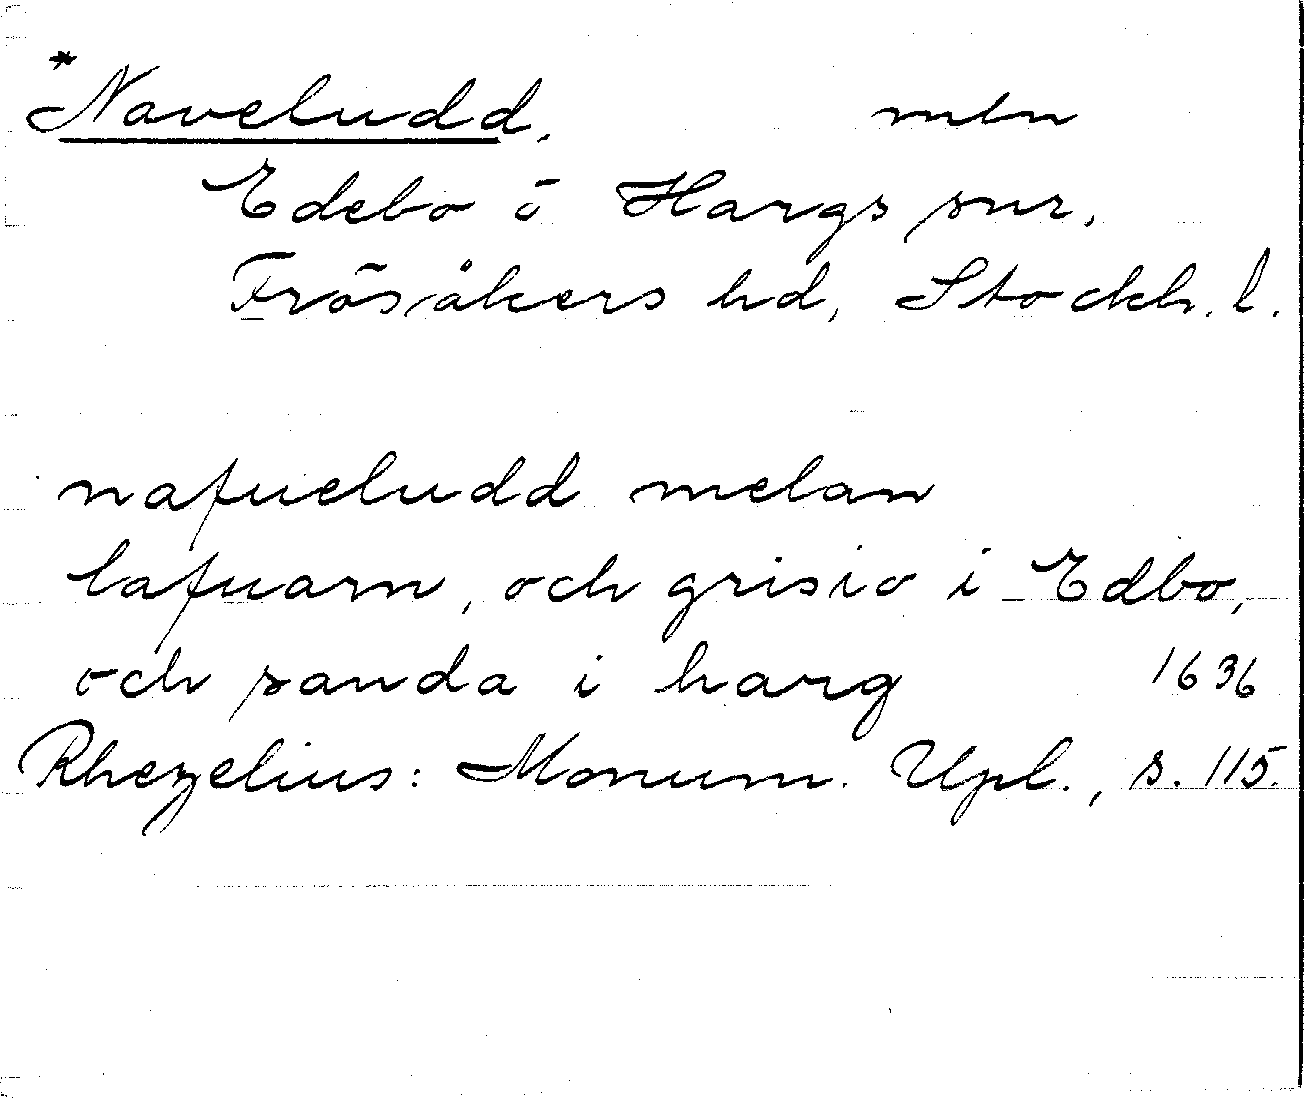 *Naveludd. mtn
Edebo o Hargs snr.
Frösåkers hd, Stockh. l.
nafueludd melan
lafuarn, och grisio i Edbo,
och sanda i harg 1636
Rhezelius: Monum. Upl., s. 115.